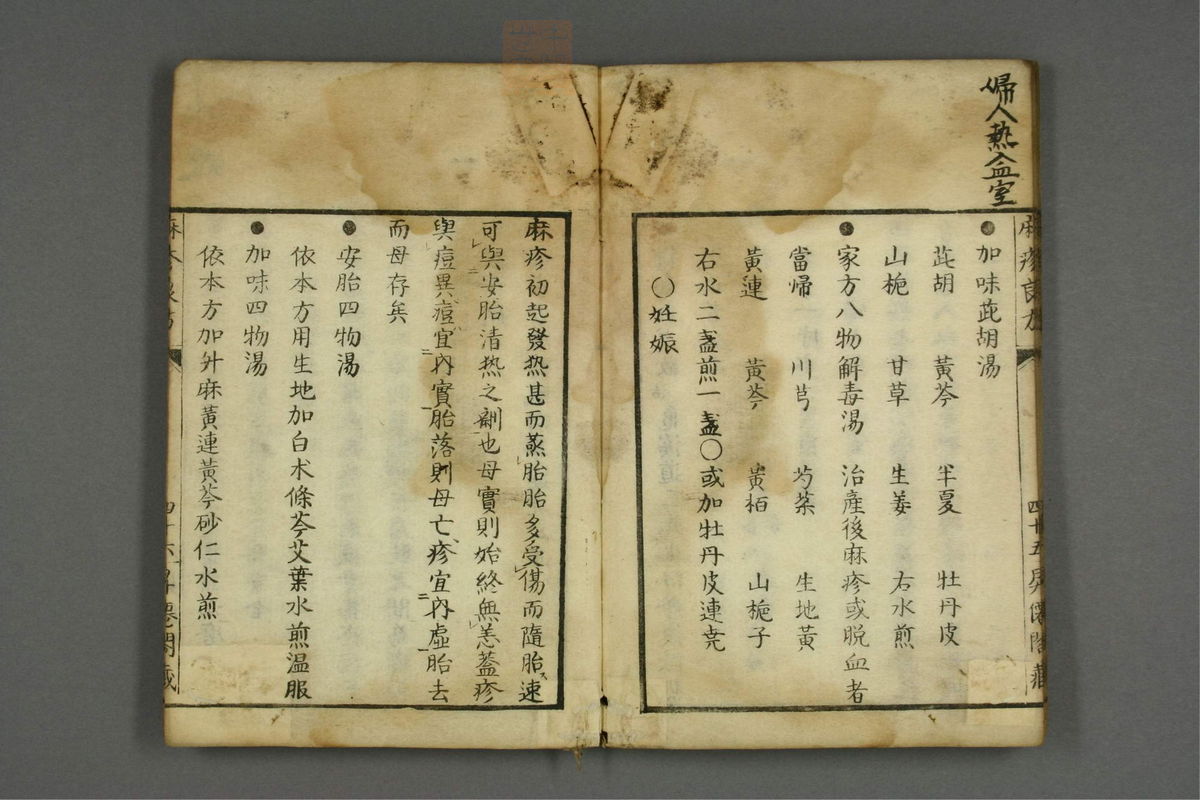 婦人熱入血室
加味茈胡湯
茈胡 黃芩 半夏 牡丹皮
山梔 甘草 生姜 右水煎
家方八物解毒湯 治產後麻疹或脫血者
當帰 川芎 芍薬 生地黃
黃連 黃芩 黄栢 山梔子
右水二盞煎一盞○或加牡丹皮連尭
○妊娠
麻疹初起發热甚而蒸胎胎多受傷而隨胎速
可與安胎清热之劑也母實則始終無恙蓋疹
與痘異痘宜內實胎落則母亡疹宜內虛胎去
而母存矣
安胎四物湯
依本方用生地加白朮條芩艾葉水煎温服
加味四物湯
依本方加升麻黃連黃芩砂仁水煎